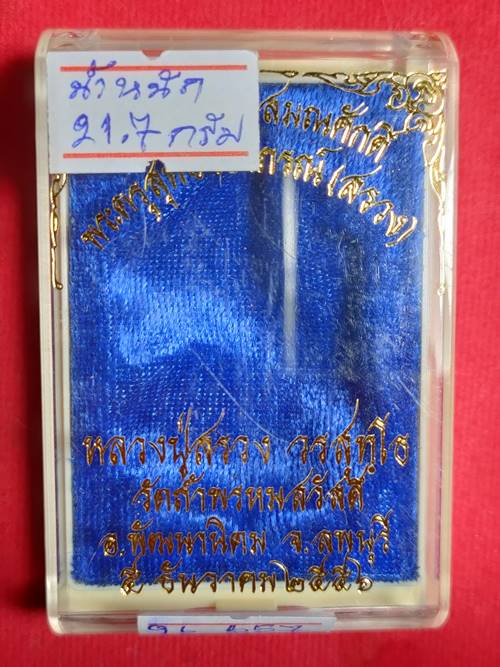 น้ำหนัก
21.7 กรัม
สมณศักดิ์
(สรวง)
หลวงปู่สรวง วรสุทฺโธ
วัดถ้ำพรหมสวัสดิ์
อ.พัฒนานิคม จ.ลพบุรี
๕ ธันวาคม ๒๕๕๖